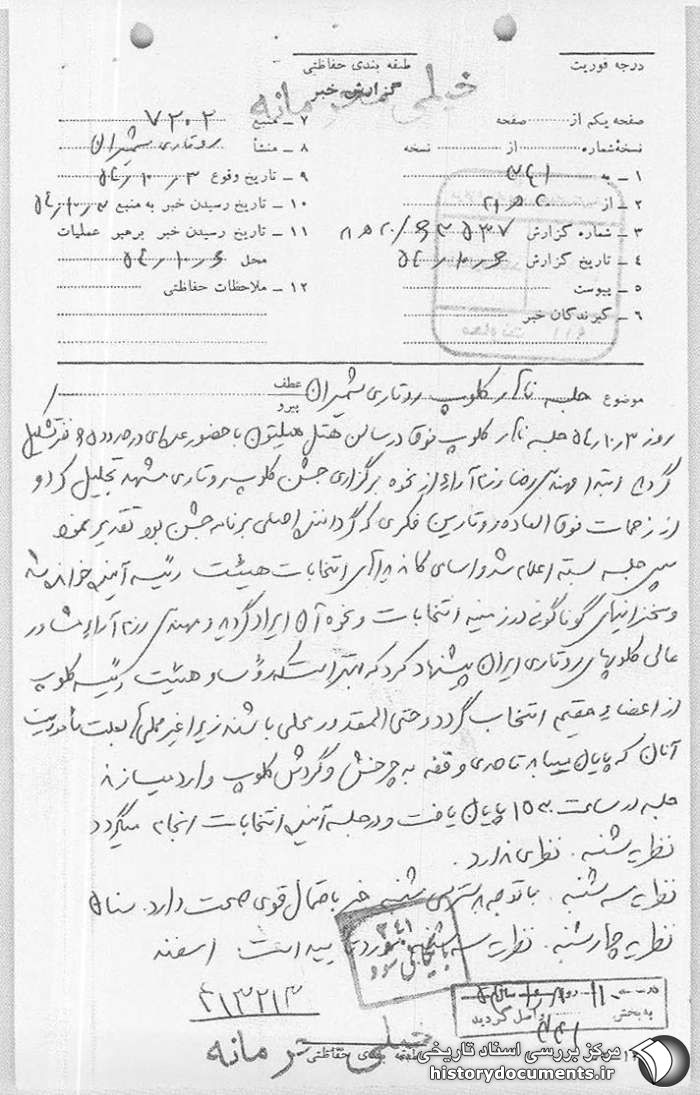 درجه فوریت
طبقه بندی حفاظتی
گزارش خبر
خیلی محرمانه
صفحه یکم از صفحه
نسخه شماره از نسخه
۱ ـ به ۳۴۱
۲ ـ از ۲۰ ه ۱۲
۳ ـ شماره گزارش
۴ ـ تاریخ گزارش
۵ ـ پیوست
۶ ـ گیرندگان خبر
۷ ـ منبع ۷۲۰۲
۸ ـ منشأ روتاری شمیران
۹ ـ تاریخ وقوع
۱۰ ـ تاریخ رسیدن خبر به منبع
۱۱ ـ تاریخ رسیدن خبر برهبر عملیات
محل
۱۲ ـ ملاحظات حفاظتی
موضوع جلسه ناهار کلوپ روتاری شمیران
عطف
پیرو
روز جلسه ناهار کلوپ فوق در سالن هتل هیلتون با حضور عده‌ای در حدود نفر تشکیل
گردید ابتدا مهندس رضا رزم‌آراء از نحوه برگزاری جشن کلوپ روتاری مشهد تجلیل کرد و
از زحمات فوق‌العاده روتارین فکری که گرداننده اصلی برنامه جشن بود تقدیر نمود
سپس جلسه بسته اعلام شد و اسامی کاندیداهای انتخابات هیئت رئیسه آینده خوانده شد
و سخنرانیهای گوناگونی در زمینه انتخابات و نحوه آن ایراد گردید و مهندس رزم‌آراء مشاور
عالی کلوپهای روتاری ایران پیشنهاد کرد که بهتر است که رؤسا و هیئت رئیسه کلوپ
از اعضاء مقیم انتخاب گردد و حتی‌المقدور محلی باشند زیرا غیر محلی بعلت مأموریت
آنان که پایان مییابد تا حدی وقفه به چرخش و گردش کلوپ وارد میسازد
جلسه در ساعت ۱۵۳۰ پایان یافت و در جلسه آینده انتخابات انجام میگردد
نظریه شنبه . نظری ندارد .
نظریه سه شنبه . با توجه به دسترسی شنبه خبر باحتمال قوی صحت دارد . سنان
نظریه چهارشنبه . نظریه سه شنبه مورد تأیید است . اسفند
۳۴۱
بایگانی شود
به بخش واصل گردید
۳۴۱
خیلی محرمانه
طبقه بندی حفاظتی
مرکز بررسی اسناد تاریخی
historydocuments.ir